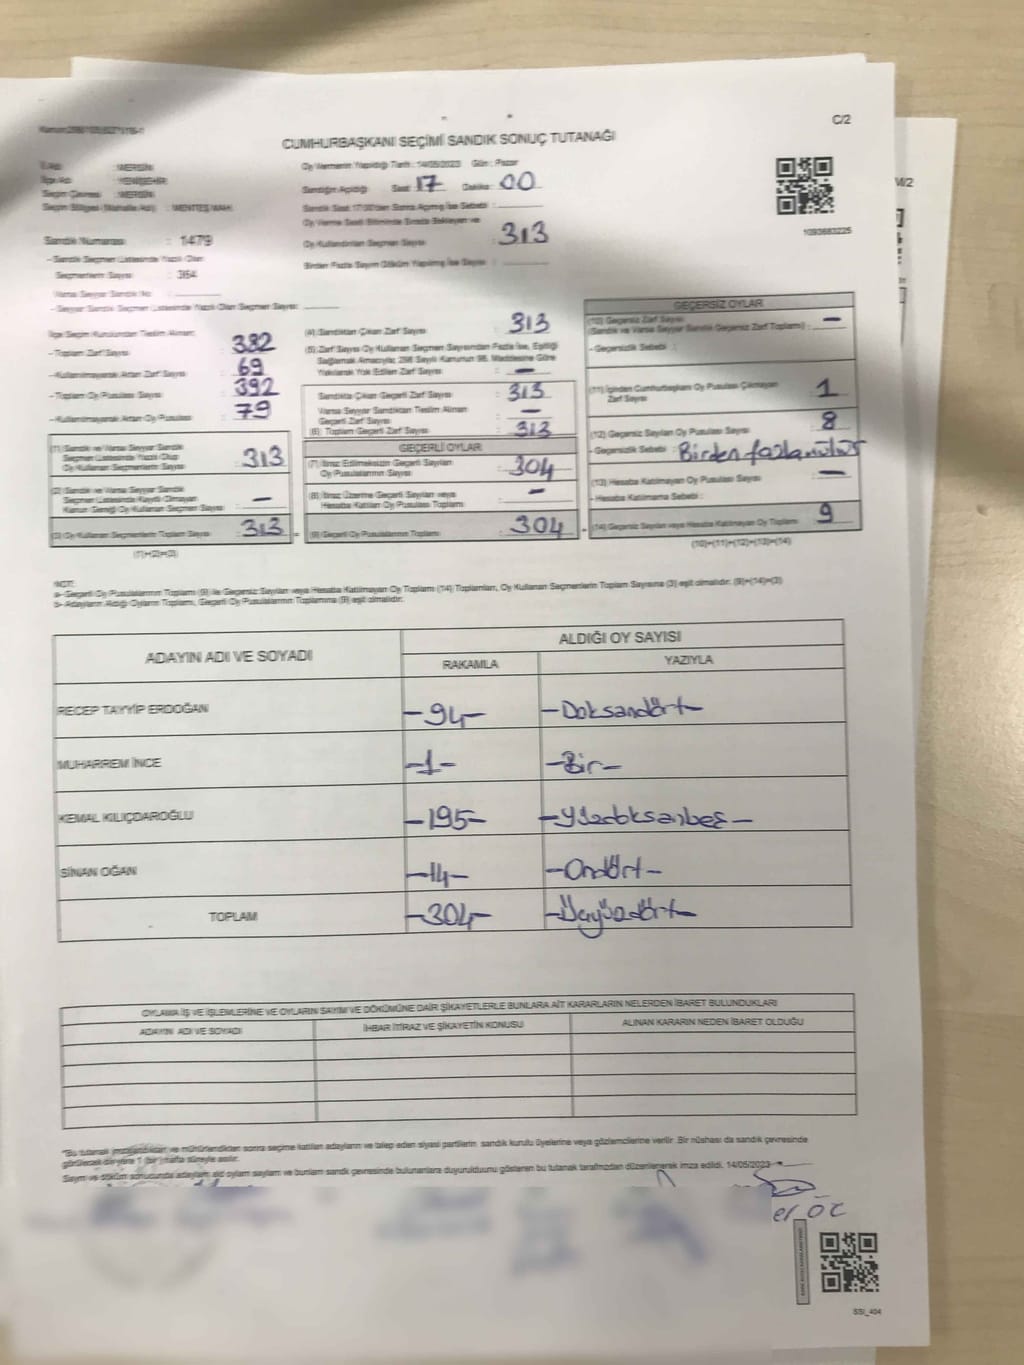 C/2
CUMHURBAŞKANI SEÇİMİ SANDIK SONUÇ TUTANAĞI
İl Adı : MERSİN
İlçe Adı : YENİŞEHİR
Seçim Çevresi : MERSİN
Seçim Bölgesi (Mahalle Adı) : MENTEŞ MAH.
Oy Vermenin Yapıldığı Tarih : 14/05/2023 Gün : Pazar
Sandığın Açıldığı Saat : 17 Dakika : 00
Sandık Saat 17:00'den Sonra Açılmış İse Sebebi :
Oy Verme Saati Bitiminde Sırada Bekleyen ve
Oy Kullandırılan Seçmen Sayısı : 313
Birden Fazla Sayım Döküm Yapılmış İse Sayısı :
1093683225
M/2
Sandık Numarası : 1479
- Sandık Seçmen Listesinde Yazılı Olan
Seçmenlerin Sayısı : 364
Varsa Seyyar Sandık No :
- Seyyar Sandık Seçmen Listesinde Yazılı Olan Seçmen Sayısı:
İlçe Seçim Kurulundan Teslim Alınan:
- Toplam Zarf Sayısı : 382
- Kullanılmayarak Artan Zarf Sayısı : 69
- Toplam Oy Pusulası Sayısı : 392
- Kullanılmayarak Artan Oy Pusulası : 79
(1) Sandık ve Varsa Seyyar Sandık
Seçmen Listesinde Yazılı Olup
Oy Kullanan Seçmenlerin Sayısı : 313
(2) Sandık ve Varsa Seyyar Sandık
Seçmen Listesinde Kayıtlı Olmayan
Kanun Gereği Oy Kullanan Seçmen Sayısı : –
(3) Oy Kullanan Seçmenlerin Toplam Sayısı : 313
(1)+(2)=(3)
(4) Sandıktan Çıkan Zarf Sayısı : 313
(5) Zarf Sayısı Oy Kullanan Seçmen Sayısından Fazla İse, Eşitliği
Sağlamak Amacıyla; 298 Sayılı Kanunun 98. Maddesine Göre
Yakılarak Yok Edilen Zarf Sayısı : –
Sandıkta Çıkan Geçerli Zarf Sayısı : 313
Varsa Seyyar Sandıktan Teslim Alınan
Geçerli Zarf Sayısı : –
(6) Toplam Geçerli Zarf Sayısı : 313
GEÇERLİ OYLAR
(7) İtiraz Edilmeksizin Geçerli Sayılan
Oy Pusulalarının Sayısı : 304
(8) İtiraz Üzerine Geçerli Sayılan veya
Hesaba Katılan Oy Pusulaları Toplamı : –
(9) Geçerli Oy Pusulalarının Toplamı : 304
GEÇERSİZ OYLAR
(10) Geçersiz Zarf Sayısı
(Sandık ve Varsa Seyyar Sandık Geçersiz Zarf Toplamı) : –
- Geçersizlik Sebebi :
(11) İçinden Cumhurbaşkanı Oy Pusulası Çıkmayan
Zarf Sayısı : 1
(12) Geçersiz Sayılan Oy Pusulası Sayısı : 8
- Geçersizlik Sebebi : Birden fazla mühür
(13) Hesaba Katılmayan Oy Pusulası Sayısı : –
- Hesaba Katılmama Sebebi :
(14) Geçersiz Sayılan veya Hesaba Katılmayan Oy Toplamı : 9
(10)+(11)+(12)+(13)=(14)
NOT:
a- Geçerli Oy Pusulalarının Toplamı (9) ile Geçersiz Sayılan veya Hesaba Katılmayan Oy Toplamı (14) Toplamları, Oy Kullanan Seçmenlerin Toplam Sayısına (3) eşit olmalıdır. (9)+(14)=(3)
b- Adayların Aldığı Oyların Toplamı, Geçerli Oy Pusulalarının Toplamına (9) eşit olmalıdır.
ADAYIN ADI VE SOYADI
ALDIĞI OY SAYISI
RAKAMLA YAZIYLA
RECEP TAYYİP ERDOĞAN -94- -Doksandört-
MUHARREM İNCE -1- -Bir-
KEMAL KILIÇDAROĞLU -195- -Yüzdoksanbeş-
SİNAN OĞAN -14- -Ondört-
TOPLAM -304- -Üçyüzdört-
OYLAMA İŞ VE İŞLEMLERİNE VE OYLARIN SAYIM VE DÖKÜMÜNE DAİR ŞİKAYETLERLE BUNLARA AİT KARARLARIN NELERDEN İBARET BULUNDUKLARI
ADAYIN ADI VE SOYADI İHBAR İTİRAZ VE ŞİKAYETİN KONUSU ALINAN KARARIN NEDEN İBARET OLDUĞU
"Bu tutanak imzalandıktan ve mühürlendikten sonra seçime katılan adayların ve talep eden siyasi partilerin sandık kurulu üyelerine veya gözlemcilerine verilir. Bir nüshası da sandık çevresinde
görülecek bir yere 1 (bir) hafta süreyle asılır.
14/05/2023
SSI_404